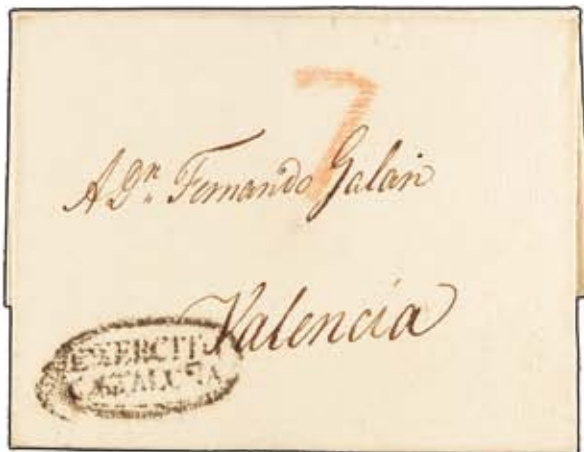 7
A Dn. Fernando Galan
Valencia
EXERCITO
CATALUÑA